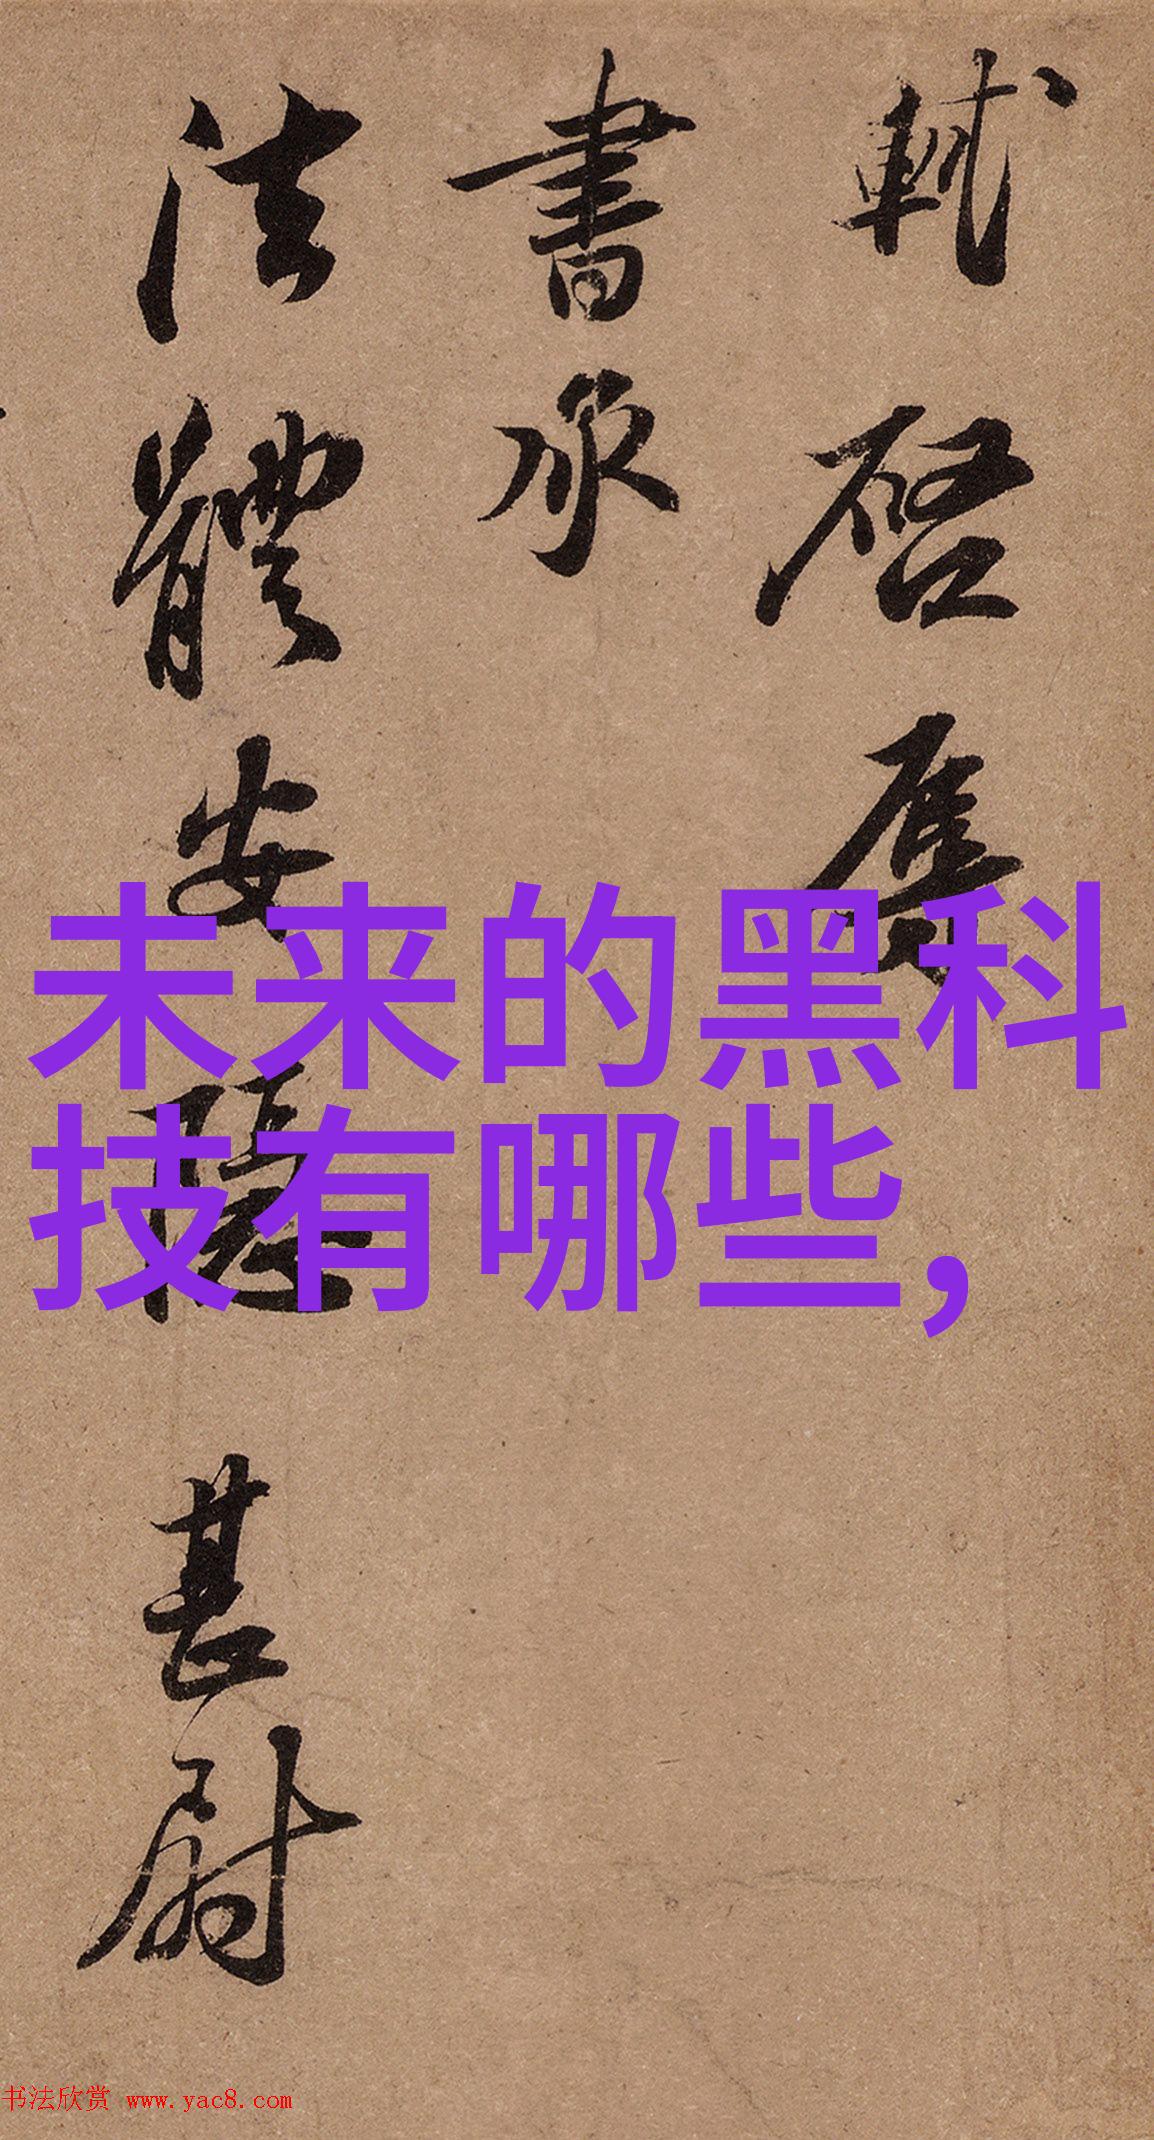 軾啓辱
書承
法體安隱甚尉
未来的黑科
技有哪些,
书法欣赏 www.yac8.com